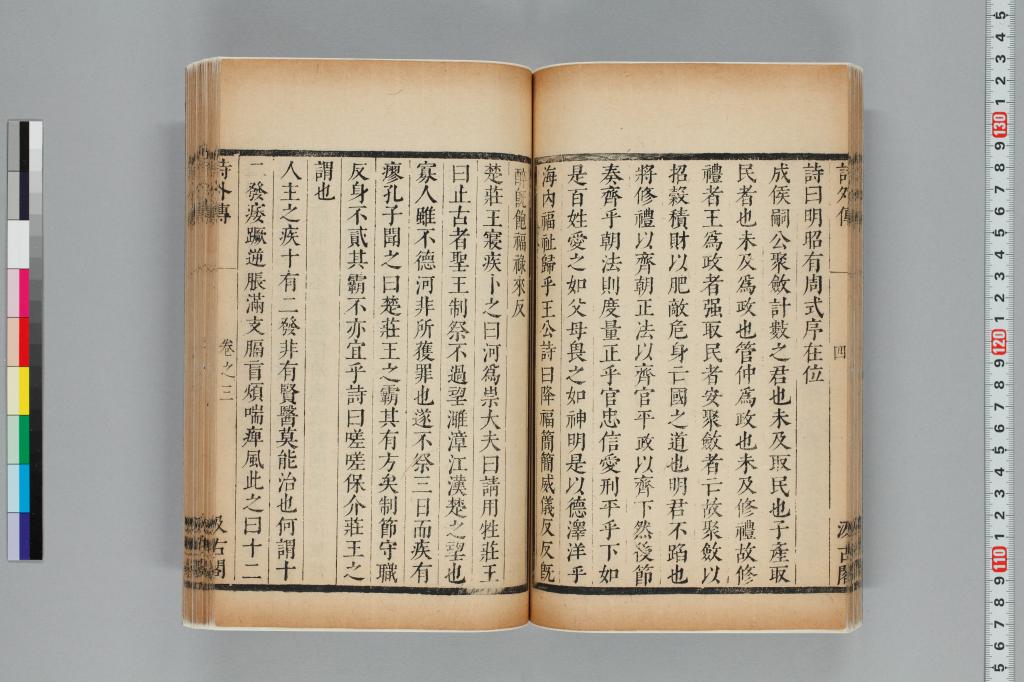 詩外傳
四
汲古閣
詩曰明昭有周式序在位
成侯嗣公聚斂計數之君也未及取民也子產取
民者也未及爲政也管仲爲政也未及修禮故修
禮者王爲政者强取民者安聚斂者亡故聚斂以
招寇積財以肥敵危身亡國之道也明君不蹈也
將修禮以齊朝正法以齊官平政以齊下然後節
奏齊乎朝法則度量正乎官忠信愛刑平乎下如
是百姓愛之如父母畏之如神明是以德澤洋乎
海內福祉歸乎王公詩曰降福簡簡威儀反反旣
醉旣飽福祿來反
楚莊王寢疾卜之曰河爲祟大夫曰請用牲莊王
曰止古者聖王制祭不過望濉漳江漢楚之望也
寡人雖不德河非所獲罪也遂不祭三日而疾有
瘳孔子聞之曰楚莊王之霸其有方矣制節守職
反身不貳其霸不亦宜乎詩曰嗟嗟保介莊王之
謂也
人主之疾十有二發非有賢醫莫能治也何謂十
二發痿蹶逆脹滿支膈盲煩喘痺風此之曰十二
詩外傳
卷之三
汲古閣
130
120
110